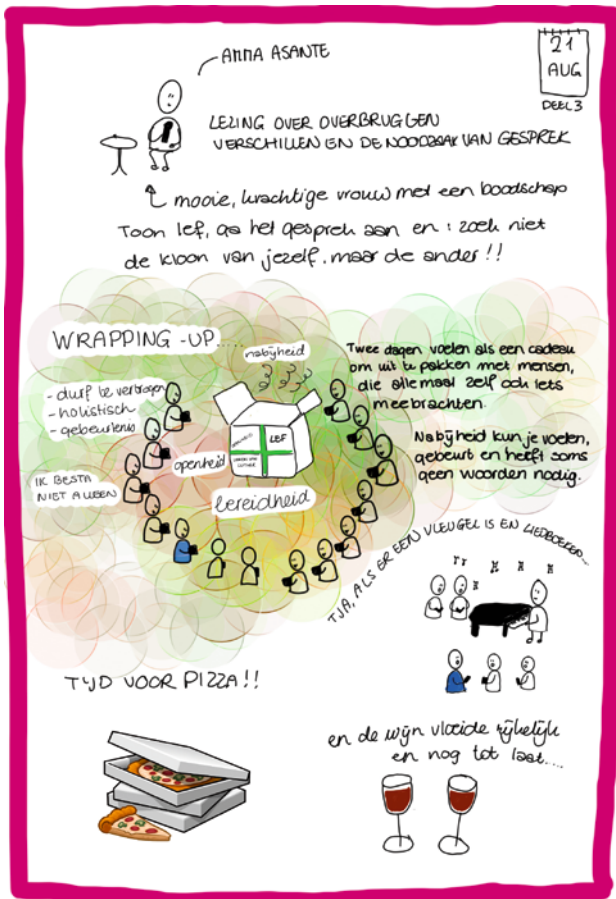 AMMA ASANTE
21
AUG
DEEL 3
LEZING OVER OVERBRUGGEN
VERSCHILLEN EN DE NOODZAAK VAN GESPREK
mooie, krachtige vrouw met een boodschap
Toon lef, ga het gesprek aan en : zoek niet
de kloon van jezelf. maar de ander !!
WRAPPING -UP.....
nabijheid
- durf te vertragen
- holistisch
- gebeurtenis
LEF
openheid
IK BESTA
NIET ALLEEN
bereidheid
Twee dagen voelen als een cadeau
om uit te pakken met mensen,
die allemaal zelf ook iets
meebrachten.
Nabijheid kun je voelen,
gebeurt en heeft soms
geen woorden nodig.
TJA, ALS ER EEN VLEUGEL IS EN LIEDBOEKEN...
TIJD VOOR PIZZA !!
en de wijn vloeide rijkelijk
en nog tot laat....